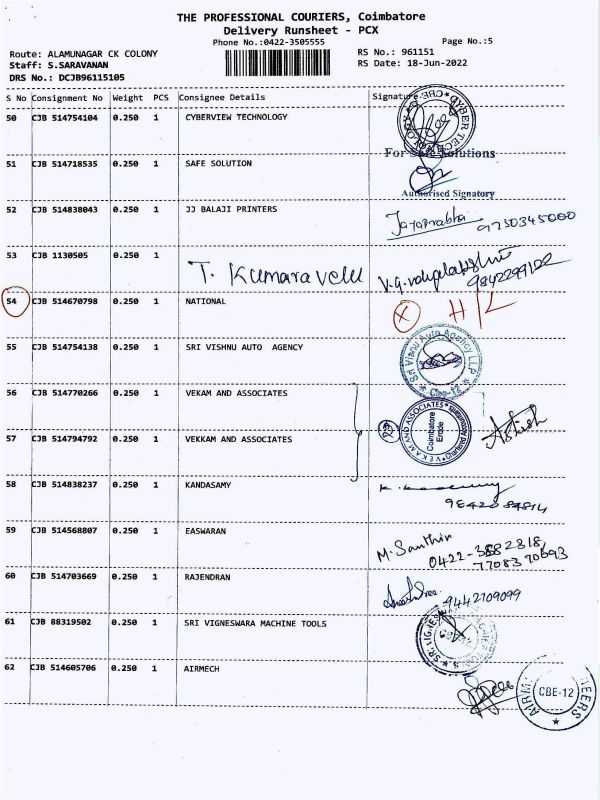 THE PROFESSIONAL COURIERS, Coimbatore
Delivery Runsheet - PCX
Phone No.:0422-3505555
Page No.:5
Route: ALAMUNAGAR CK COLONY
RS No.: 961151
Staff: S.SARAVANAN
RS Date: 18-Jun-2022
DRS No.: DCJB96115105
S No Consignment No Weight PCS Consignee Details Signature
50 CJB 514754104 0.250 1 CYBERVIEW TECHNOLOGY
For Safe Solutions
51 CJB 514718535 0.250 1 SAFE SOLUTION
Authorised Signatory
52 CJB 514838043 0.250 1 JJ BALAJI PRINTERS
Jayaprabha 9750345000
53 CJB 1130505 0.250 1
T. Kumaravelu
9842299122
54 CJB 514670798 0.250 1 NATIONAL
X H/L
55 CJB 514754138 0.250 1 SRI VISHNU AUTO AGENCY
Sri Visnu Auto Agency LLP
Cbe-12
56 CJB 514770266 0.250 1 VEKAM AND ASSOCIATES
VEKAM AND ASSOCIATES
Chartered Accountants
Coimbatore
Erode
57 CJB 514794792 0.250 1 VEKKAM AND ASSOCIATES
Ashish
58 CJB 514838237 0.250 1 KANDASAMY
59 CJB 514568807 0.250 1 EASWARAN
M. Santhir
7708370693
60 CJB 514703669 0.250 1 RAJENDRAN
9442109099
61 CJB 88319502 0.250 1 SRI VIGNESWARA MACHINE TOOLS
62 CJB 514605706 0.250 1 AIRMECH
CBE-12